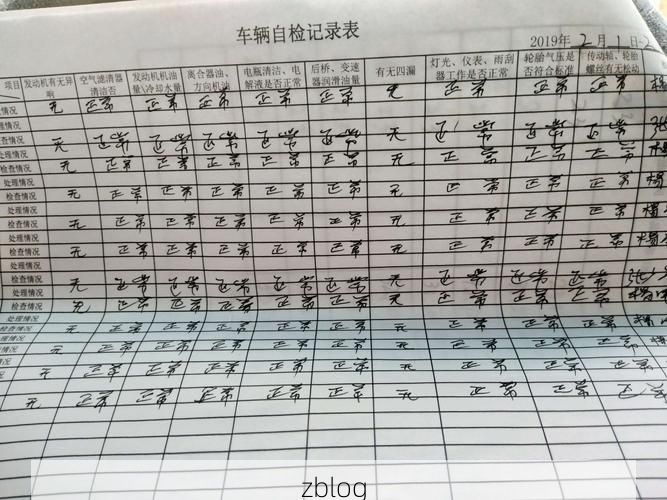 车辆自检记录表
2019年 2月1日-2
项目 发动机有无异响 空气滤清器清洁否 发动机机油量\冷却水量 离合器油、方向机油 电瓶清洁、电解液是否正常 后桥、变速器润滑油量 有无四漏 灯光、仪表、雨刮器工作是否正常 轮胎气压是否符合标准 传动轴、轮胎螺丝有无松动
查情况 无 正常 正常 正常 正常 正常 无 正常 正常 正常
处理情况
检查情况 无 正常 正常 正常 正常 正常 无 正常 正常 正常
处理情况
检查情况 无 正常 正常 正常 正常 正常 无 正常 正常 正常
处理情况
检查情况 无 正常 正常 正常 正常 正常 无 正常 正常 正常
处理情况
检查情况 无 正常 正常 正常 正常 正常 无 正常 正常 正常
处理情况
检查情况 无 正常 正常 正常 正常 正常 无 正常 正常 正常
处理情况
检查情况 无 正常 正常 正常 正常 正常 无 正常 正常 正常
处理情况
检查情况 无 正常 正常 正常 正常 正常 无 正常 正常 正常
处理情况
检查情况 无 正常 正常 正常 正常 正常 无 正常 正常 正常
处理情况 无 正常 正常 正常 正常 正常 无 正常 正常 正常
无 正常 正常 正常 正常 正常 无 正常 正常 正常
无 正常 正常 正常 正常 正常 无 正常 正常 正常
zblog